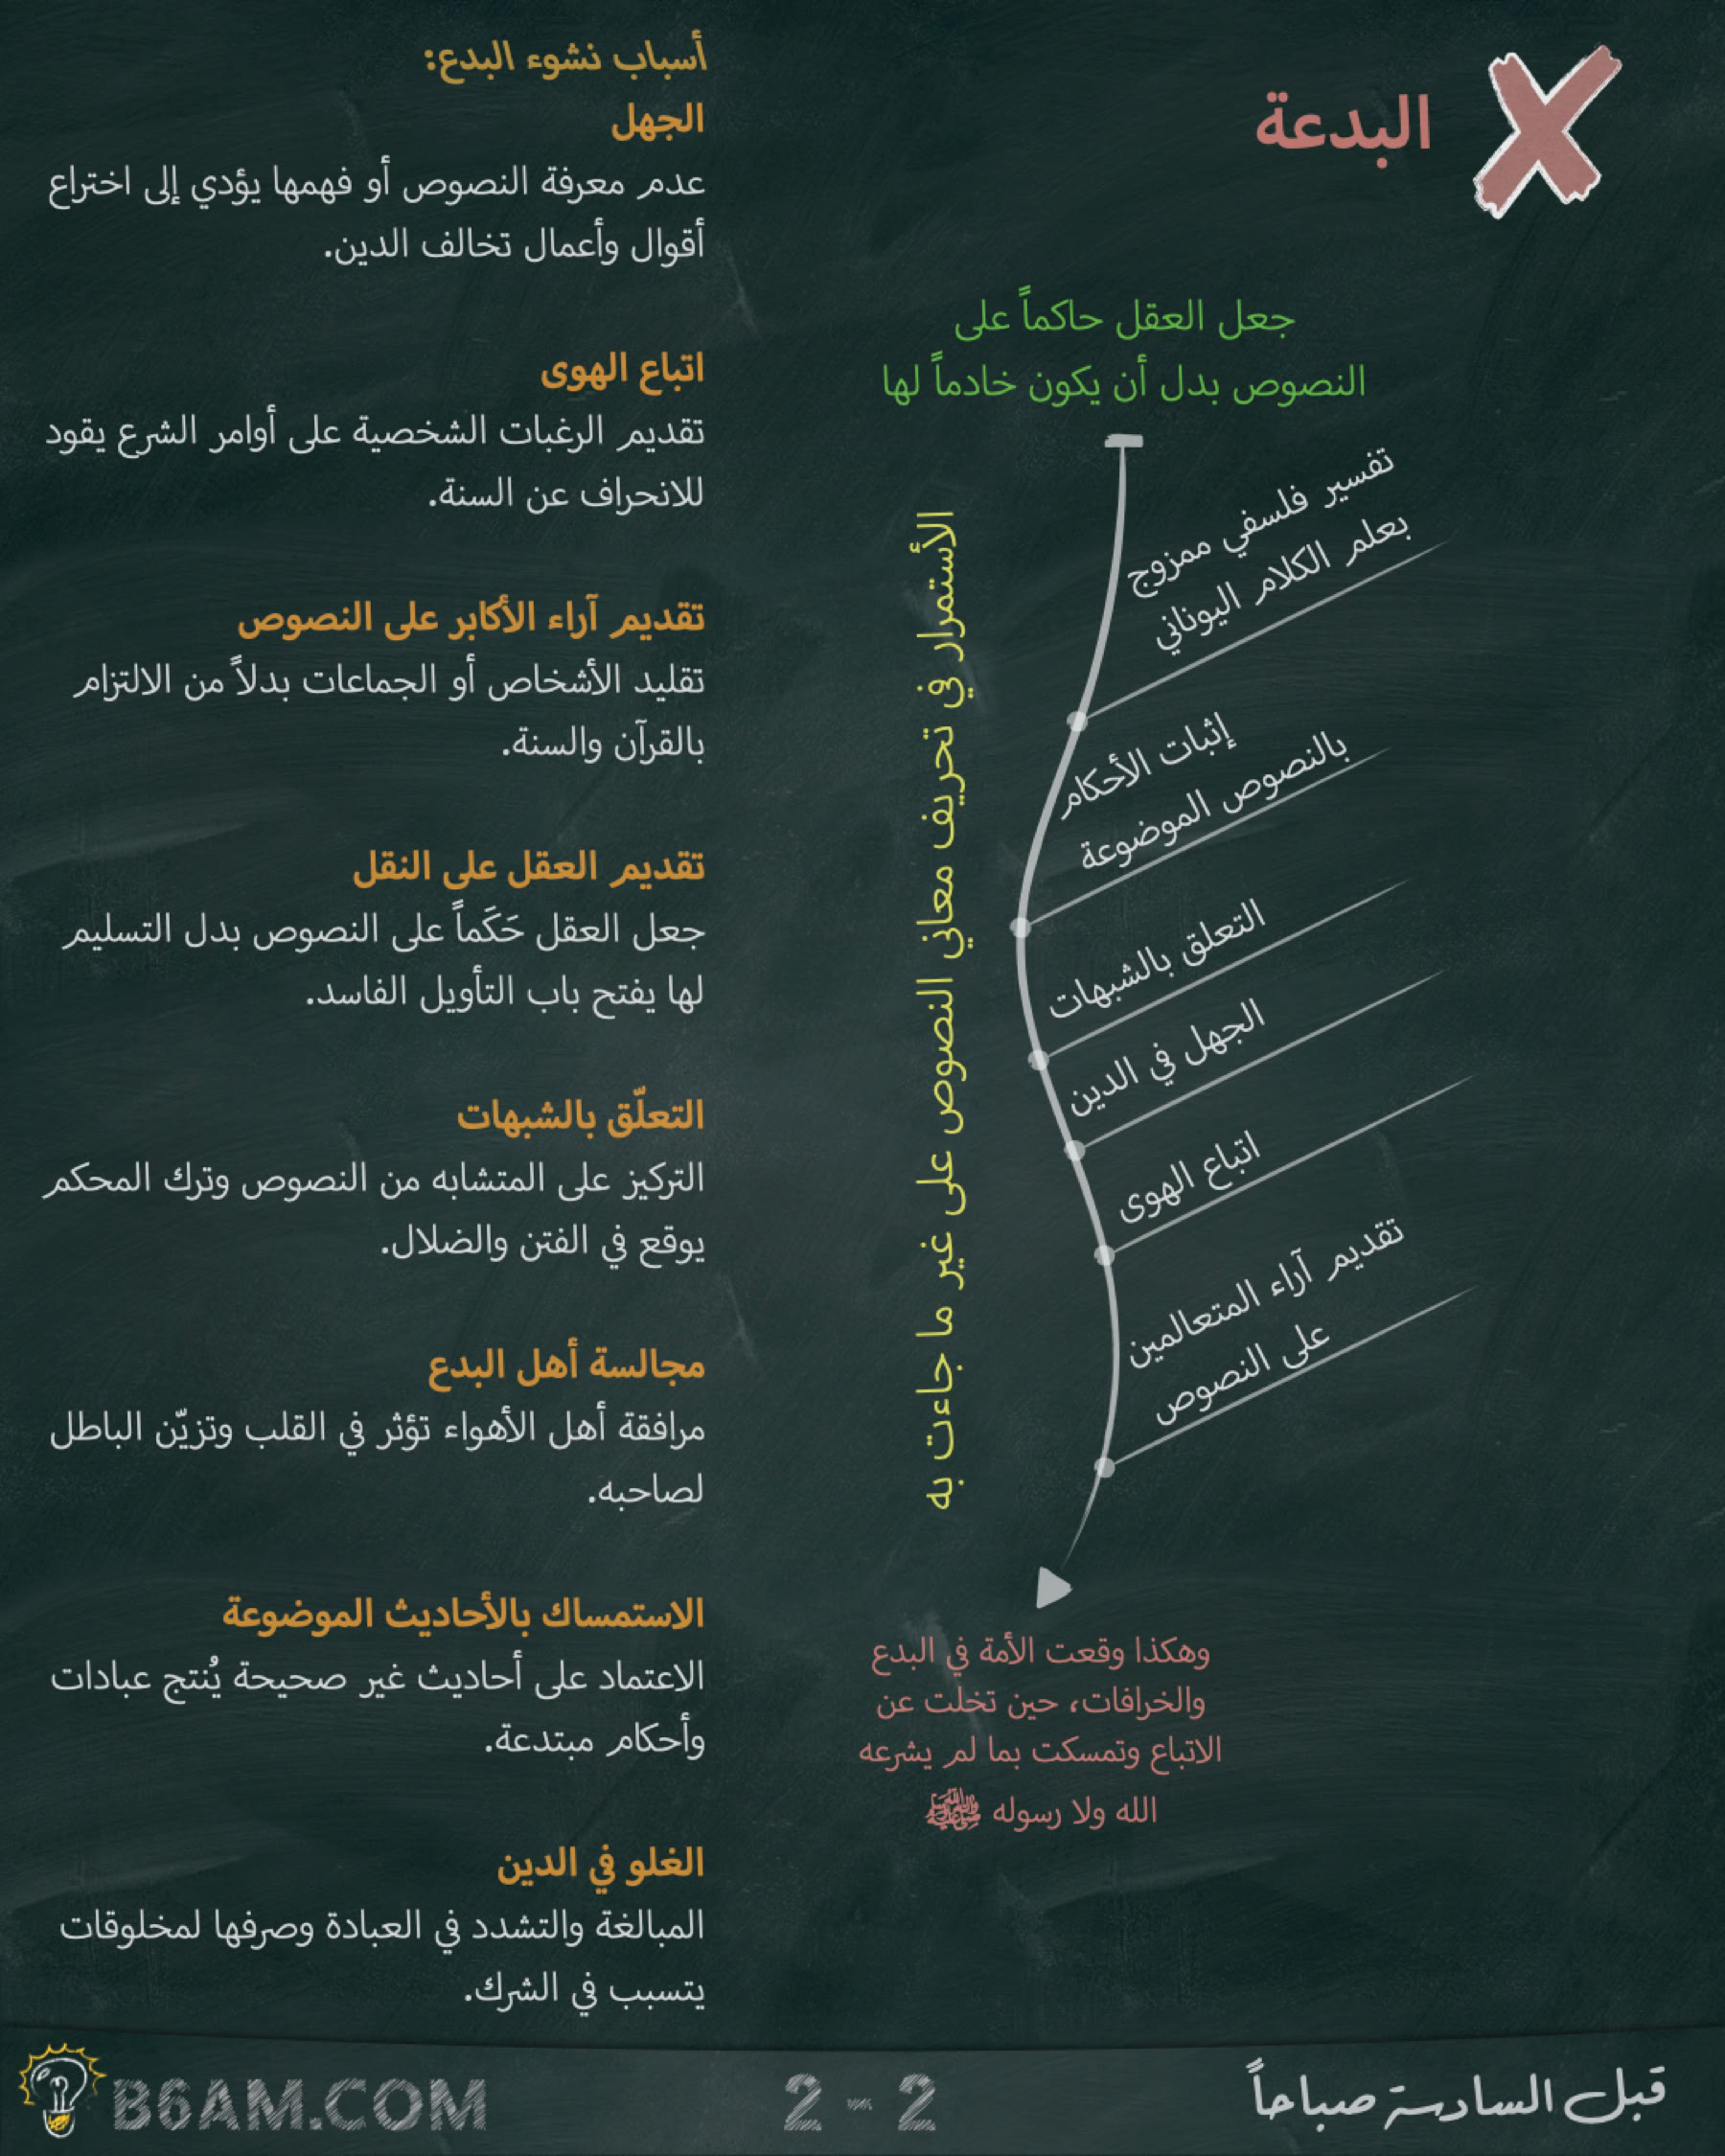 البدعة
جعل العقل حاكماً على
النصوص بدل أن يكون خادماً لها
تفسير فلسفي ممزوج
بعلم الكلام اليوناني
إثبات الأحكام
بالنصوص الموضوعة
التعلق بالشبهات
الجهل في الدين
اتباع الهوى
تقديم آراء المتعالمين
على النصوص
الأستمرار في تحريف معاني النصوص على غير ما جاءت به
وهكذا وقعت الأمة في البدع
والخرافات، حين تخلت عن
الاتباع وتمسكت بما لم يشرعه
الله ولا رسوله ﷺ
أسباب نشوء البدع:
الجهل
عدم معرفة النصوص أو فهمها يؤدي إلى اختراع
أقوال وأعمال تخالف الدين.
اتباع الهوى
تقديم الرغبات الشخصية على أوامر الشرع يقود
للانحراف عن السنة.
تقديم آراء الأكابر على النصوص
تقليد الأشخاص أو الجماعات بدلاً من الالتزام
بالقرآن والسنة.
تقديم العقل على النقل
جعل العقل حَكَماً على النصوص بدل التسليم
لها يفتح باب التأويل الفاسد.
التعلّق بالشبهات
التركيز على المتشابه من النصوص وترك المحكم
يوقع في الفتن والضلال.
مجالسة أهل البدع
مرافقة أهل الأهواء تؤثر في القلب وتزيّن الباطل
لصاحبه.
الاستمساك بالأحاديث الموضوعة
الاعتماد على أحاديث غير صحيحة يُنتج عبادات
وأحكام مبتدعة.
الغلو في الدين
المبالغة والتشدد في العبادة وصرفها لمخلوقات
يتسبب في الشرك.
قبل السادسة صباحاً
2 - 2
B6AM.COM